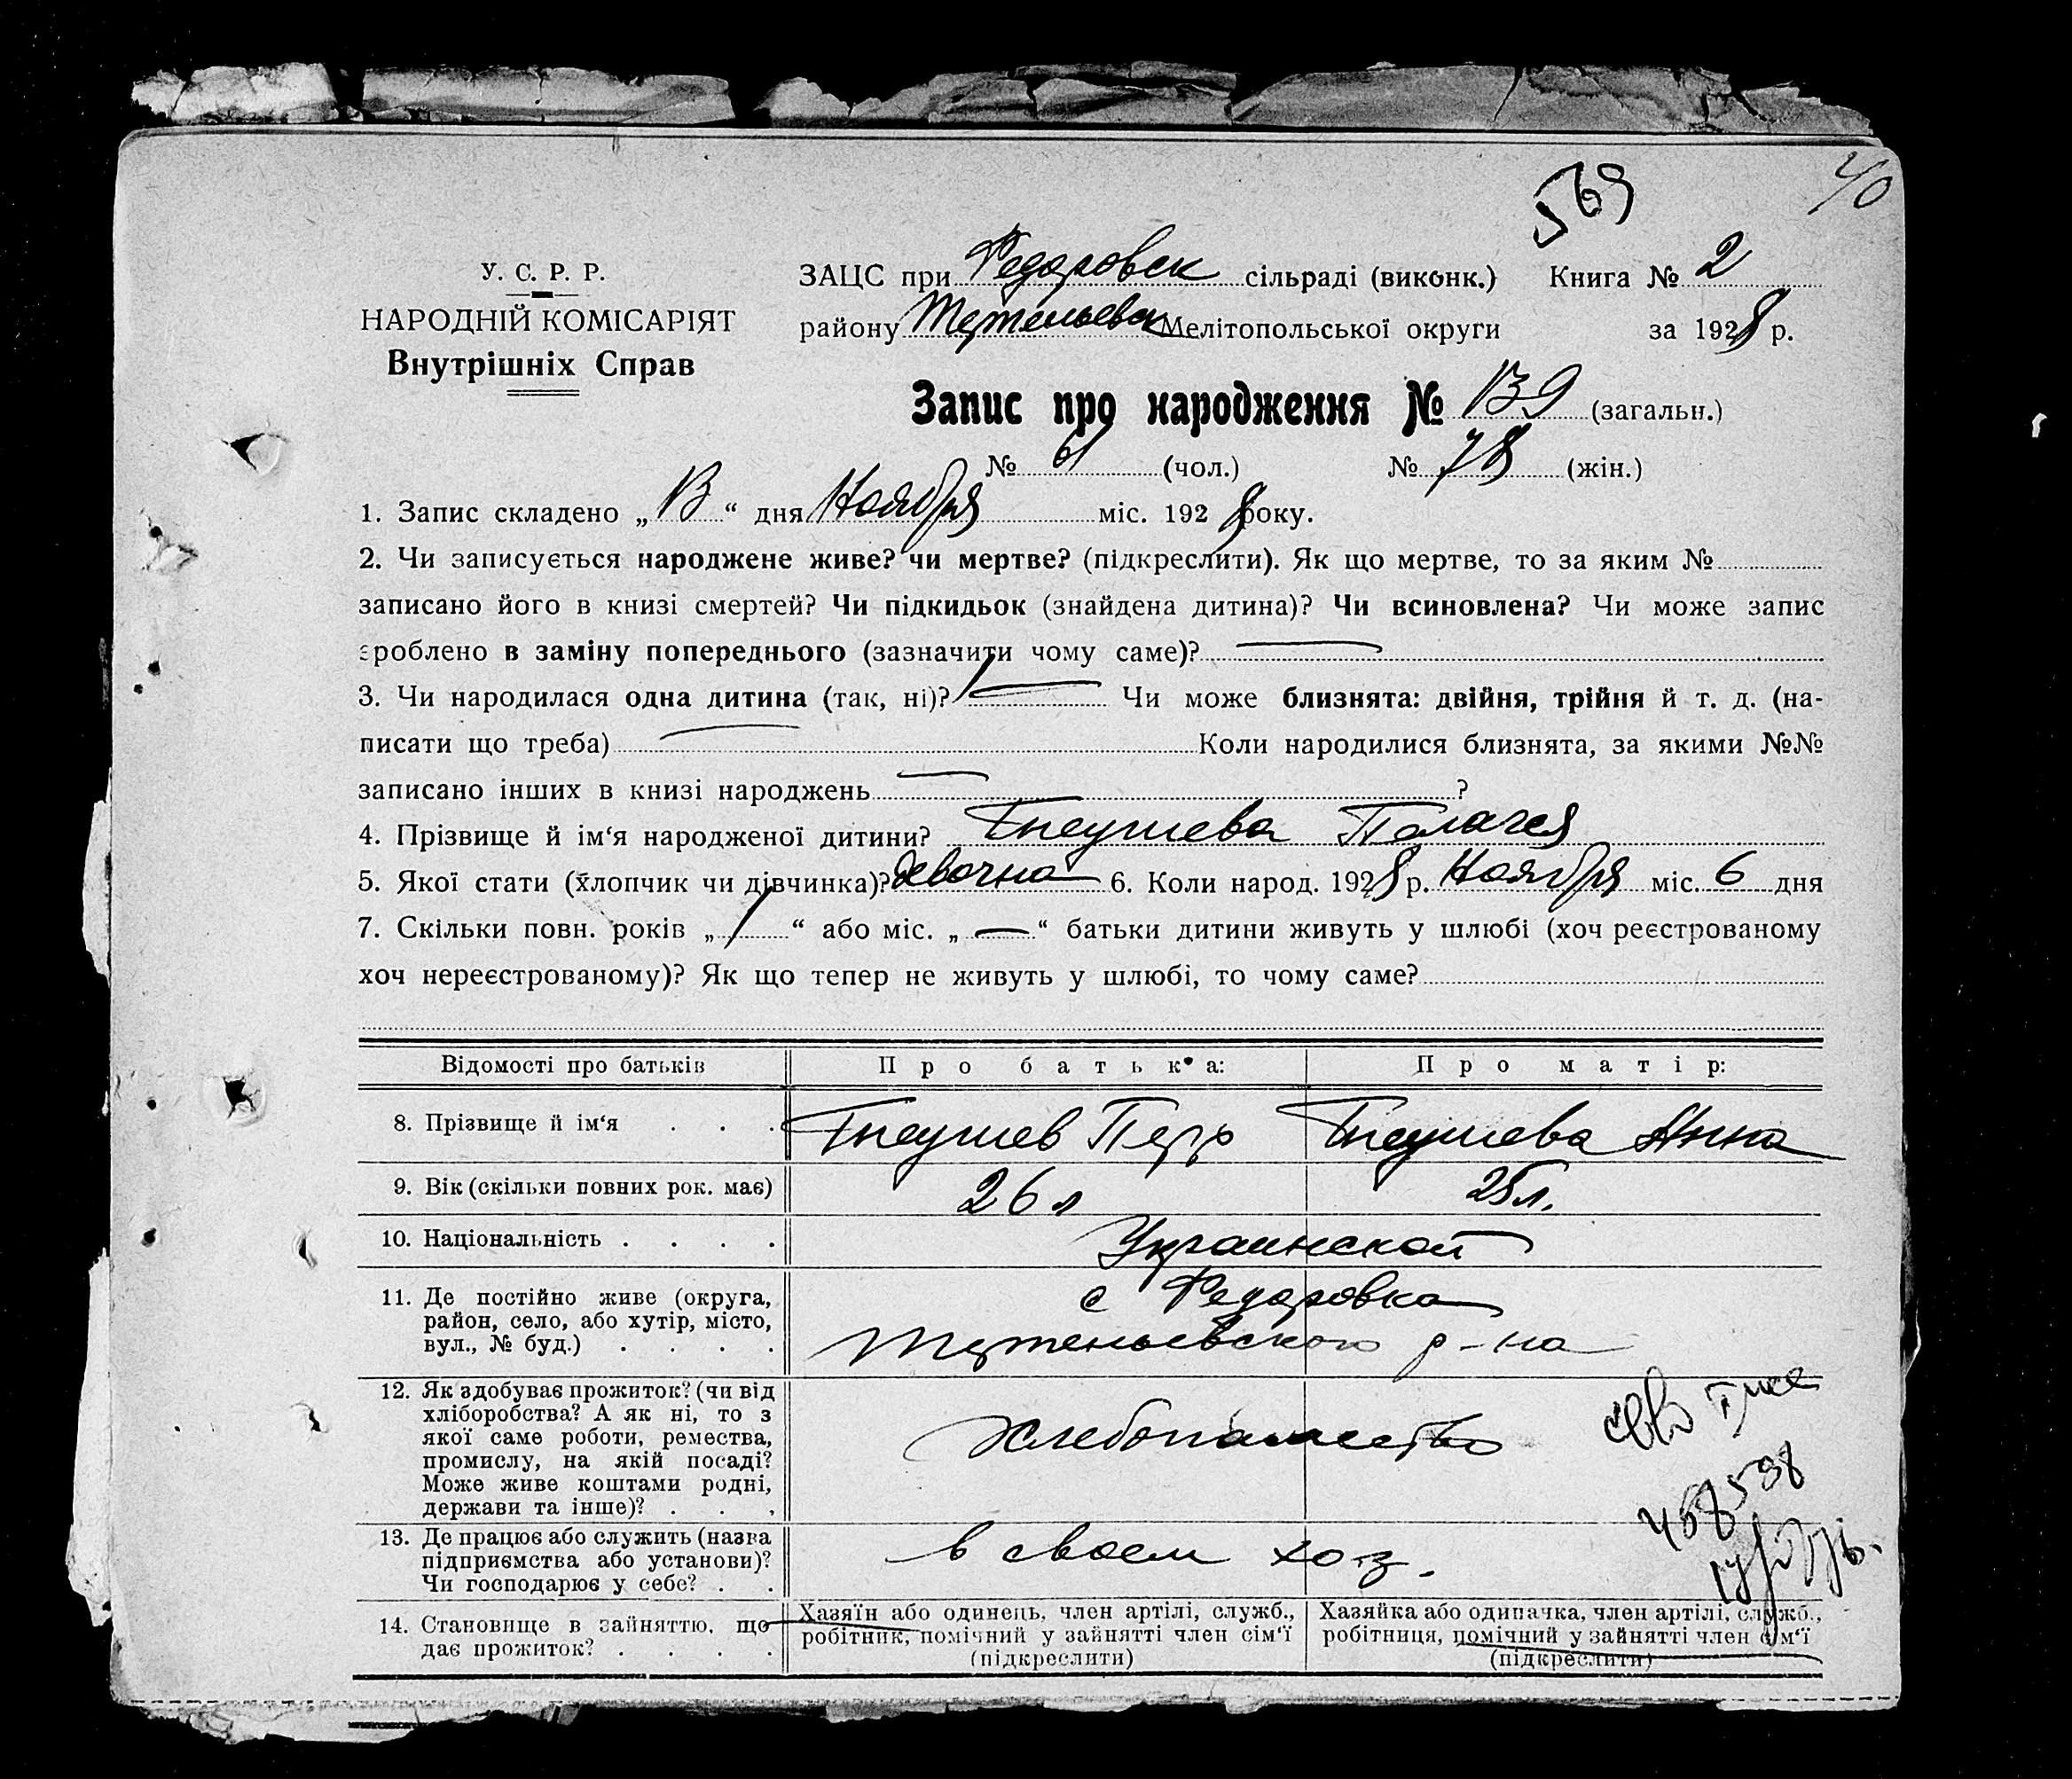 569
40
У. С. Р. Р.
НАРОДНІЙ КОМІСАРІЯТ
Внутрішніх Справ
ЗАЦС при Федоровск сільраді (виконк.) Книга № 2
району Мелітопольської округи за 1928 р.
Запис про народження № 139 (загальн.)
№ 61 (чол.) № 78 (жін.)
1. Запис складено „13“ дня Ноября міс. 1928 року.
2. Чи записується народжене живе? чи мертве? (підкреслити). Як що мертве, то за яким №
записано його в книзі смертей? Чи підкидьок (знайдена дитина)? Чи всиновлена? Чи може запис
зроблено в заміну попереднього (зазначити чому саме)? —
3. Чи народилася одна дитина (так, ні)? 1 — Чи може близнята: двійня, трійня й т. д. (на-
писати що треба) — Коли народилися близнята, за якими №№
записано інших в книзі народжень — ?
4. Прізвище й ім‘я народженої дитини? Гнеушева Пелагея
5. Якої стати (хлопчик чи дівчинка)? девочка 6. Коли народ. 1928 р. Ноября міс. 6 дня
7. Скільки повн. років „1“ або міс. „—“ батьки дитини живуть у шлюбі (хоч реєстрованому
хоч нереєстрованому)? Як що тепер не живуть у шлюбі, то чому саме?
Відомості про батьків Про батька: Про матір:
8. Прізвище й ім‘я . . . Гнеушев Петр Гнеушева Анна
9. Вік (скільки повних рок. має) 26 л 25 л.
10. Національність . . . . Украинской
11. Де постійно живе (округа,
район, село, або хутір, місто,
вул., № буд.) . . . .
с Федоровка
р-на
12. Як здобуває прожиток? (чи від
хліборобства? А як ні, то з
якої саме роботи, ремества,
промислу, на якій посаді?
Може живе коштами родні,
держави та інше)? . . .
Хлебопашество
458598
13. Де працює або служить (назва
підприємства або установи)?
Чи господарює у себе? . .
в своем хоз.
14. Становище в зайняттю, що
дає прожиток? . . . .
Хазяїн або одинець, член артілі, служб.,
робітник, помічний у зайнятті член сім‘ї
(підкреслити)
Хазяйка або одиначка, член артілі, служб.,
робітниця, помічний у зайнятті член сім‘ї
(підкреслити)